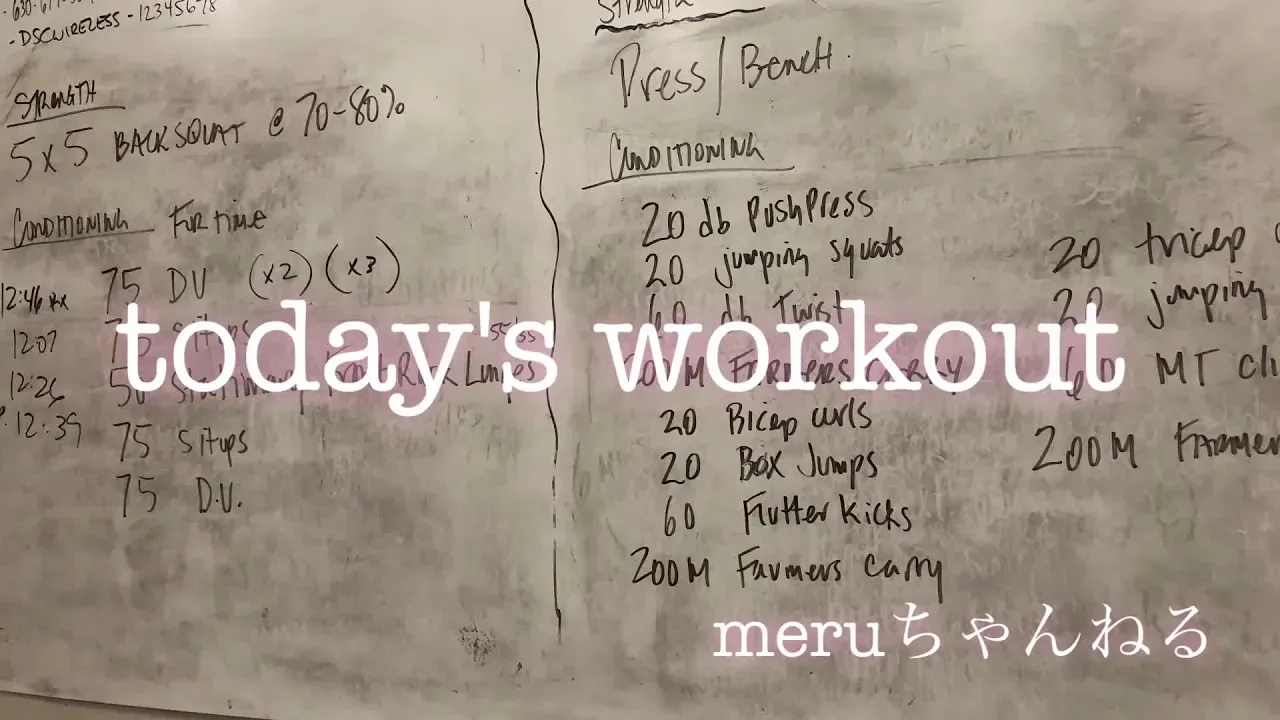 - DSCWIRELESS - 12345678
STRENGTH
5 x 5 BACK SQUAT @ 70-80%
CONDITIONING FOR TIME
75 DU (x2) (x3)
12:46 RX
12:07
12:26
12:39
75 Situps
50
75 Situps
75 D.U.
Strength
Press / Bench.
CONDITIONING
20 db PushPress
20 jumping squats
60 db Twist
200M Farmers Carry
20 Bicep curls
20 Box Jumps
60 Flutter kicks
200M Farmers Carry
20 tricep
20 jumping
60 MT
200M
today's workout
meruちゃんねる